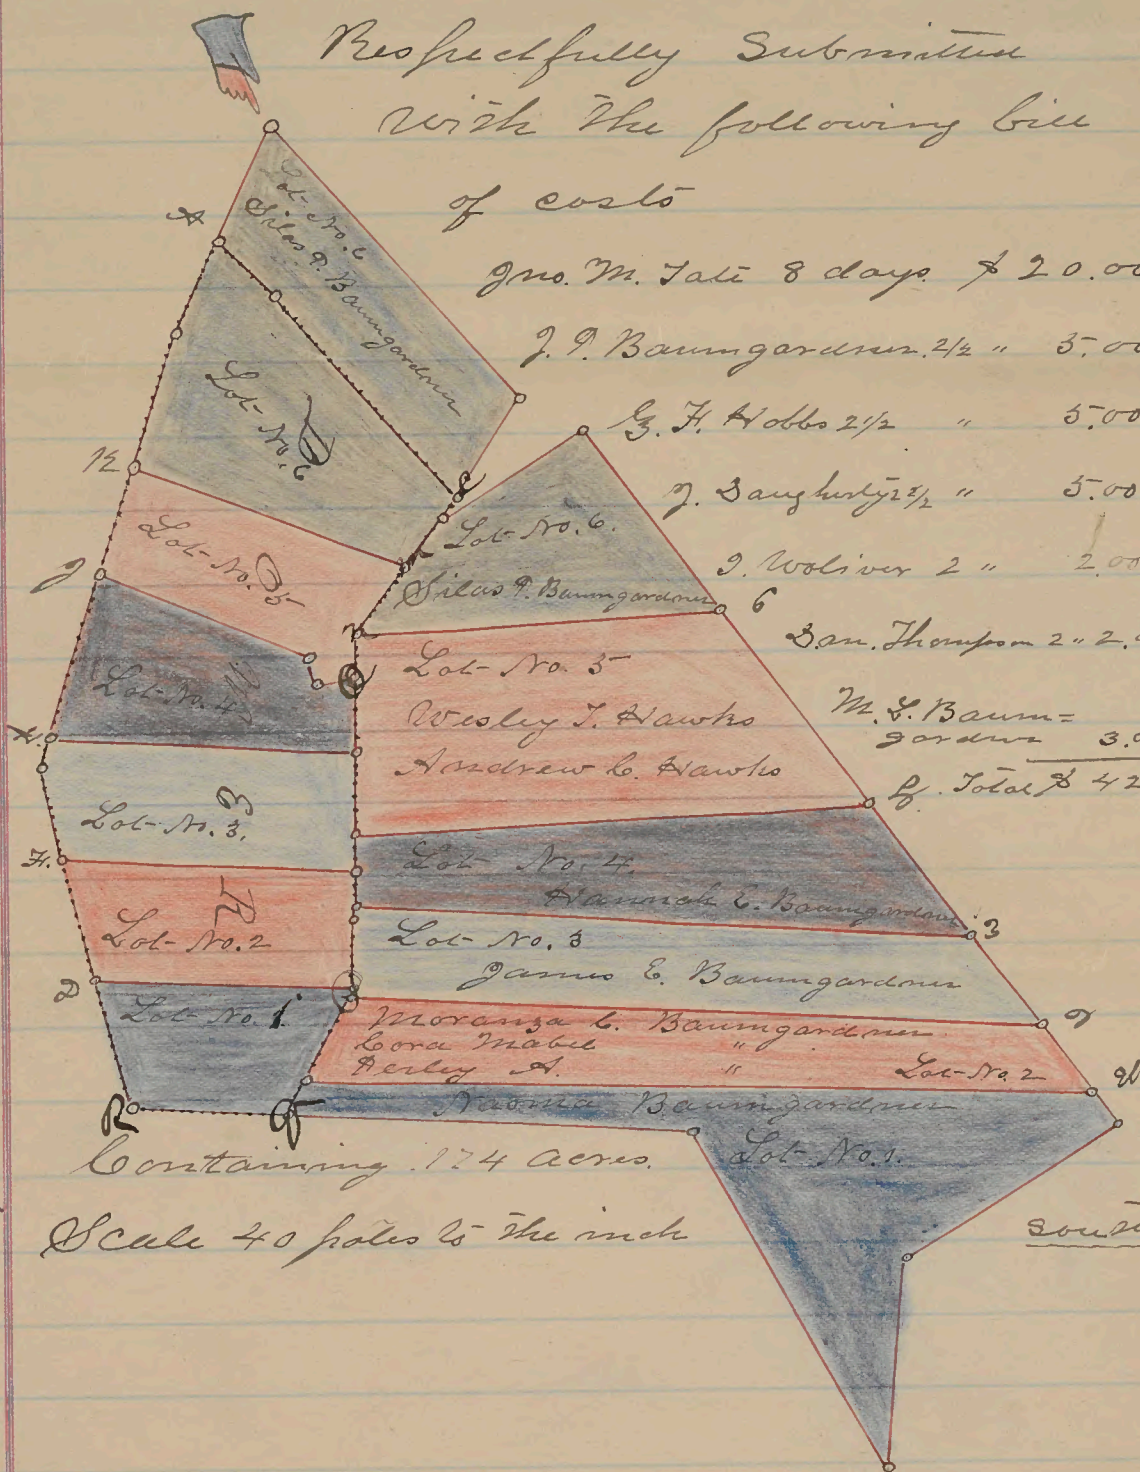 Respectfully Submitted
with the following bill
of costs
Jno. M. Tate 8 days. $ 20.00
J. P. Baumgardner. 2 1/2 " 5.00
G. F. Hobbs 2 1/2 " 5.00
J. Daugherty 2 1/2 " 5.00
I. Woliver 2 " 2.00
Dan. Thompson 2 " 2.
M. L. Baum=
gardner 3.
Total $ 42
Lot No. 6
Silas P. Baumgardner
A
Lot No. 6
K
Lot No. 6.
Silas P. Baumgardner
6
Lot No. 5
J
Lot No. 5
Wesley T. Hawks
Andrew C. Hawks
Lot No. 4
Lot No. 4.
Hannah E. Baumgardner
3
Lot No. 3.
3
F.
Lot No. 3
James E. Baumgardner
Lot No. 2
D
Moranza C. Baumgardner
Cora Mabel "
Perley A. " Lot No. 2
Lot No. 1.
Naoma Baumgardner
R
Lot No. 1.
Containing 174 Acres.
Scale 40 poles to the inch